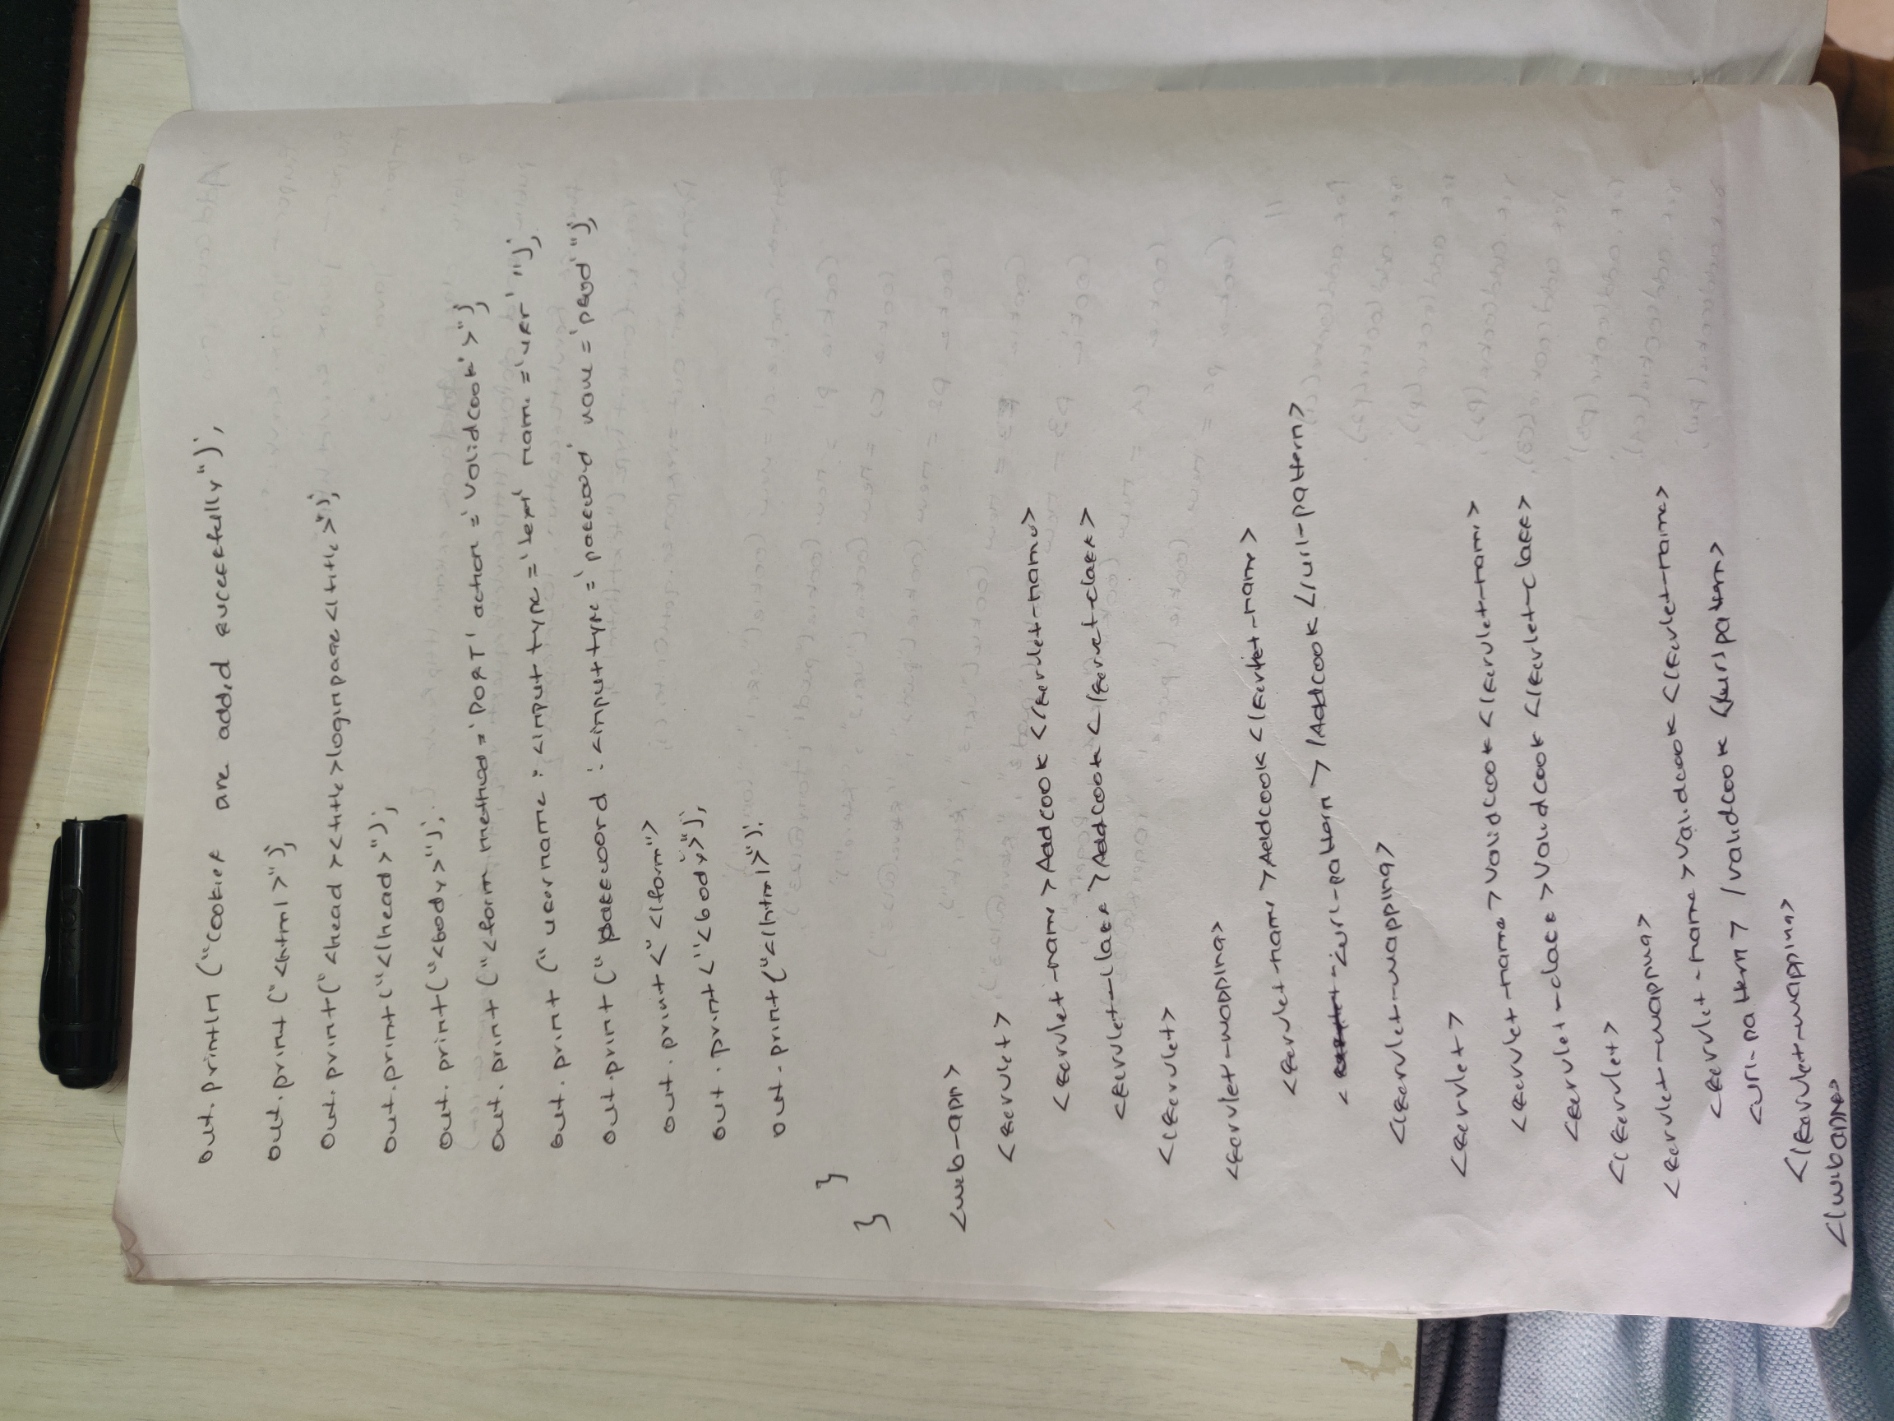 out.println ("Cookies are added sucessfully");
out.print ("<html>");
out.print("<head><title>loginpage</title>");
out.print("</head>");
out.print("<body>");
out.print ("<form method='POST' action='Validcook'>");
out.print ("username : <input type='text' name='usr' ");
out.print ("password : <input type='password' name='pswd' ");
out.print <" </form">
out.print <"<body>");
out.print ("</html>");
}
}
<web-app>
<servlet>
<servlet-name>Addcook</servlet-name>
<servlet-class>Addcook</servet-class>
</servlet>
<servlet-mapping>
<servlet-name>Addcook</servlet-name>
< <url-pattern>/Addcook</url-pattern>
</servlet-mapping>
<servlet>
<servlet-name>Validcook</servlet-name>
<servlet-class>Validcook</servlet-class>
</servlet>
<servlet-mapping>
<servlet-name>Validcook</servlet-name>
<url-pattern> /validcook </urlpattern>
</servlet-mapping>
</webapp>